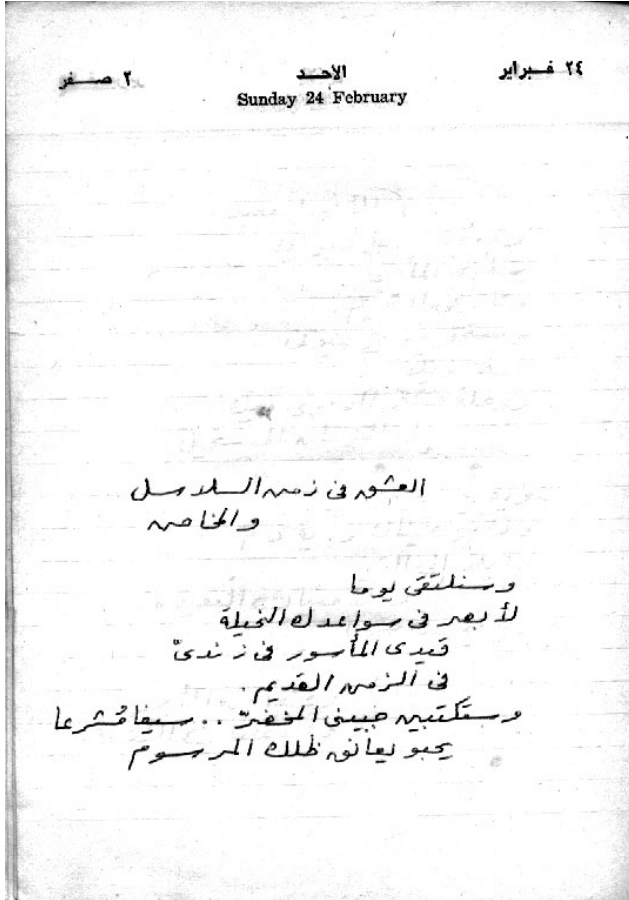 ٢٤ فبراير الأحد ٢ صفر
Sunday 24 February
العشق فى زمن السلاسل
والمخاض
وسنلتقى يوما
لأبصر فى سواعدك النحيلة
قيدى المأسور فى زندىّ
فى الزمن القديم .
وستكتبين جبينى المخضرّ .. سيفا مُشرعا
يحبو يعانق ظلك المرسوم